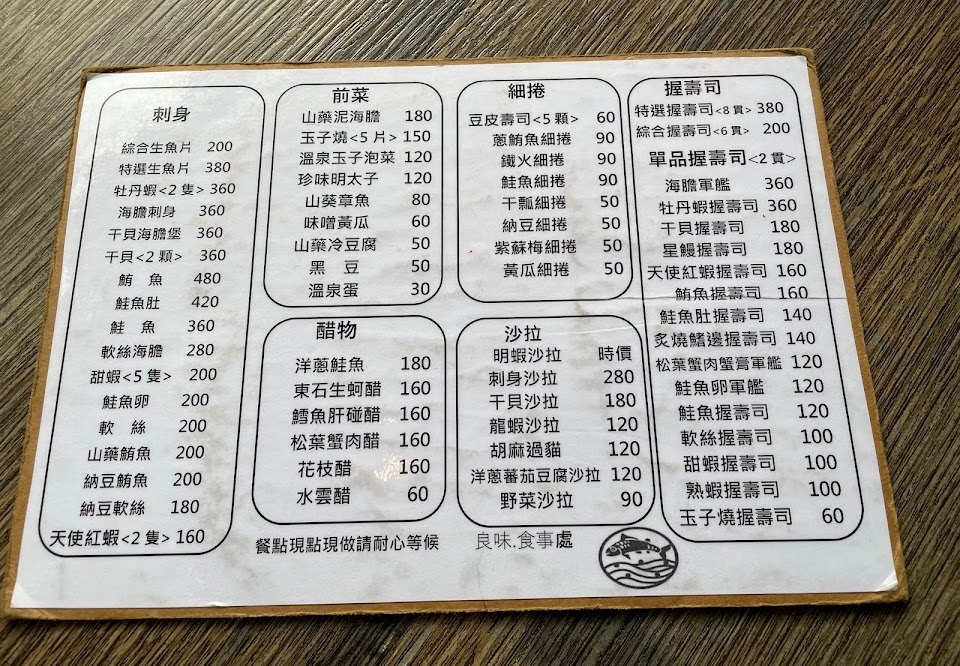 刺身
綜合生魚片 200
特選生魚片 380
牡丹蝦<2 隻> 360
海膽刺身 360
干貝海膽堡 360
干貝<2 顆> 360
鮪 魚 480
鮭魚肚 420
鮭 魚 360
軟絲海膽 280
甜蝦<5 隻> 200
鮭魚卵 200
軟 絲 200
山藥鮪魚 200
納豆鮪魚 200
納豆軟絲 180
天使紅蝦<2 隻> 160
前菜
山藥泥海膽 180
玉子燒<5 片> 150
溫泉玉子泡菜 120
珍味明太子 120
山葵章魚 80
味噌黃瓜 60
山藥冷豆腐 50
黑 豆 50
溫泉蛋 30
醋物
洋蔥鮭魚 180
東石生蚵醋 160
鱈魚肝碰醋 160
松葉蟹肉醋 160
花枝醋 160
水雲醋 60
細捲
豆皮壽司<5 顆> 60
蔥鮪魚細捲 90
鐵火細捲 90
鮭魚細捲 90
干瓢細捲 50
納豆細捲 50
紫蘇梅細捲 50
黃瓜細捲 50
沙拉
明蝦沙拉 時價
刺身沙拉 280
干貝沙拉 180
龍蝦沙拉 120
胡麻過貓 120
洋蔥蕃茄豆腐沙拉 120
野菜沙拉 90
握壽司
特選握壽司<8 貫> 380
綜合握壽司<6 貫> 200
單品握壽司<2 貫>
海膽軍艦 360
牡丹蝦握壽司 360
干貝握壽司 180
星鰻握壽司 180
天使紅蝦握壽司 160
鮪魚握壽司 160
鮭魚肚握壽司 140
炙燒鰭邊握壽司 140
松葉蟹肉蟹膏軍艦 120
鮭魚卵軍艦 120
鮭魚握壽司 120
軟絲握壽司 100
甜蝦握壽司 100
熟蝦握壽司 100
玉子燒握壽司 60
餐點現點現做請耐心等候
良味.食事處